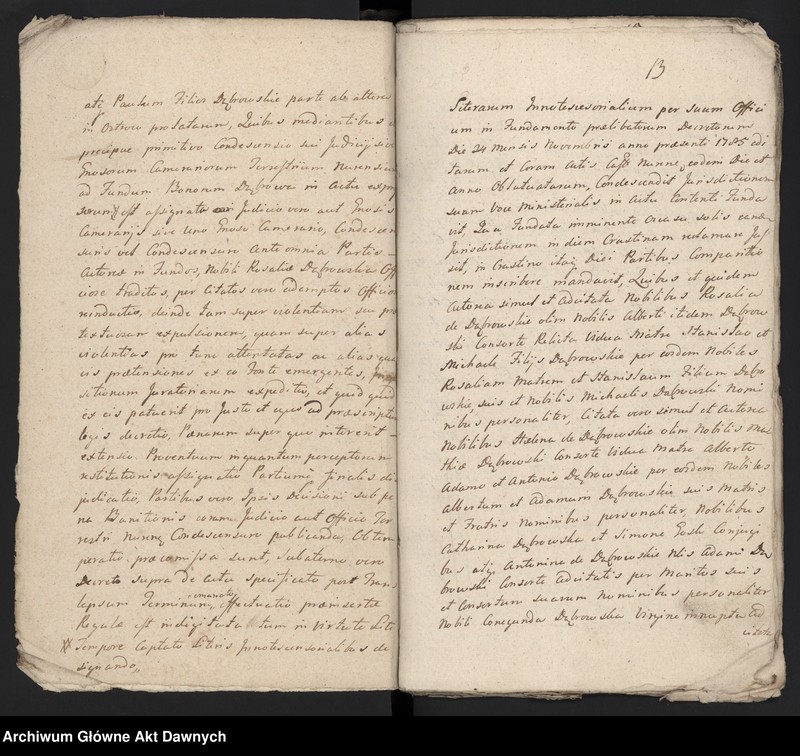 atq Paulum Filios Dąbrowskie parte ab altera
in Ostrow prolatarum, Quibus mediantibus
precipue primitivo Condescensio sui Judicij sive
Gnosorum Camerariorum Terrestrium Nurensium
ad Fundum Bonorum Dąbrowa in Actu
est assignata Judicio vero aut Gnosis
Camerarijs sive Uno Gnoso Camerario, Condescen
suris vel Condescensuro Ante omnia Partis
Autorea in Fundos, Nobili Rosaliæ Dąbrowska Offi
ciose traditos, per Citatos vero ademptos Officiosa
reinductio, deinde tam super violentiam seu præ
textuosam expulsionem, quam super alias
violentias pro tunc attentatas ac alias
vis prætensiones ex eo Fonte emergentes,
Juratoriarum expeditio, et quid quid
ex eis patuerit pro Justo et equo ad præscriptum
legis decretio, Pœnarum super quo intererit
extensio. Proventuum in quantum perceptorum
restitutionis assignatio Partium finalis di
judicatio, Partibus vero Ipsis Decisioni sub pœ
na Bannitionis coram Judicio aut Officio Ter
restri Nurensi Condescensuro publicanda, Obtem
peratio præcomissa sunt, Subalterno vero
Decreto supra de Actu specificato post Trans
lapsum Terminum, affectuatio præinsertæ
Regulæ est indigitata tum in Virtute Lite
Tempore Captato Literis Innotescensorialibus de
signando,,
13
Literarum Innotescesorialium per suum Offici
um in Fundamento prælibatorum Decretorum
Die 24 Mensis Novembris anno præsenti 1785 edi
tarum et Coram Actis Castr Nurens eodem Die et
Anno Oblatuatarum, Condescendit Jurisdictionem
suam Voce Ministerialis in Actu Contenti Funda
vit, Qua Fundata imminente Occasu solis eande
Jurisdictionem in diem Crastinam reclamare Jus
sit, in Crastino itaq Diei Partibus Comparitio
nem inscribere mandavit, Quibus et quidem
Autorea simul et Adcitata Nobilibus Rosalia
de Dąbrowskie olim Nobilis Alberti itidem Dąbrow
ski Consorte Relicta Vidua Matre Stanislao et
Michaele Filijs Dąbrowskie per eosdem Nobiles
Rosaliam Matrem et Stanislaum Filium Dąbro
wskie, suis et Nobilis Michaelis Dąbrowski Nomi
nibus personaliter, Citata vero simul et Autorea
Nobilibus Helena de Dąbrowskie olim Nobilis Mat
thiæ Dąbrowski Consorte Vidua Matre Alberto
Adamo et Antonio Dąbrowskie per eosdem Nobiles
Albertum et Adamum Dąbrowskie suis Matris
et Fratris Nominibus personaliter, Nobilibus
Catharina Dąbrowska et Simone Gosk Conjugi
bus atq Antonina de Dąbrowskie Nlis Adami Dą
browski Consorte Adcitatis per Maritos suis
et Consortum suarum Nominibus personaliter
Nobili Conegunda Dąbrowska Virgine innupta Ad
citata
Archiwum Główne Akt Dawnych